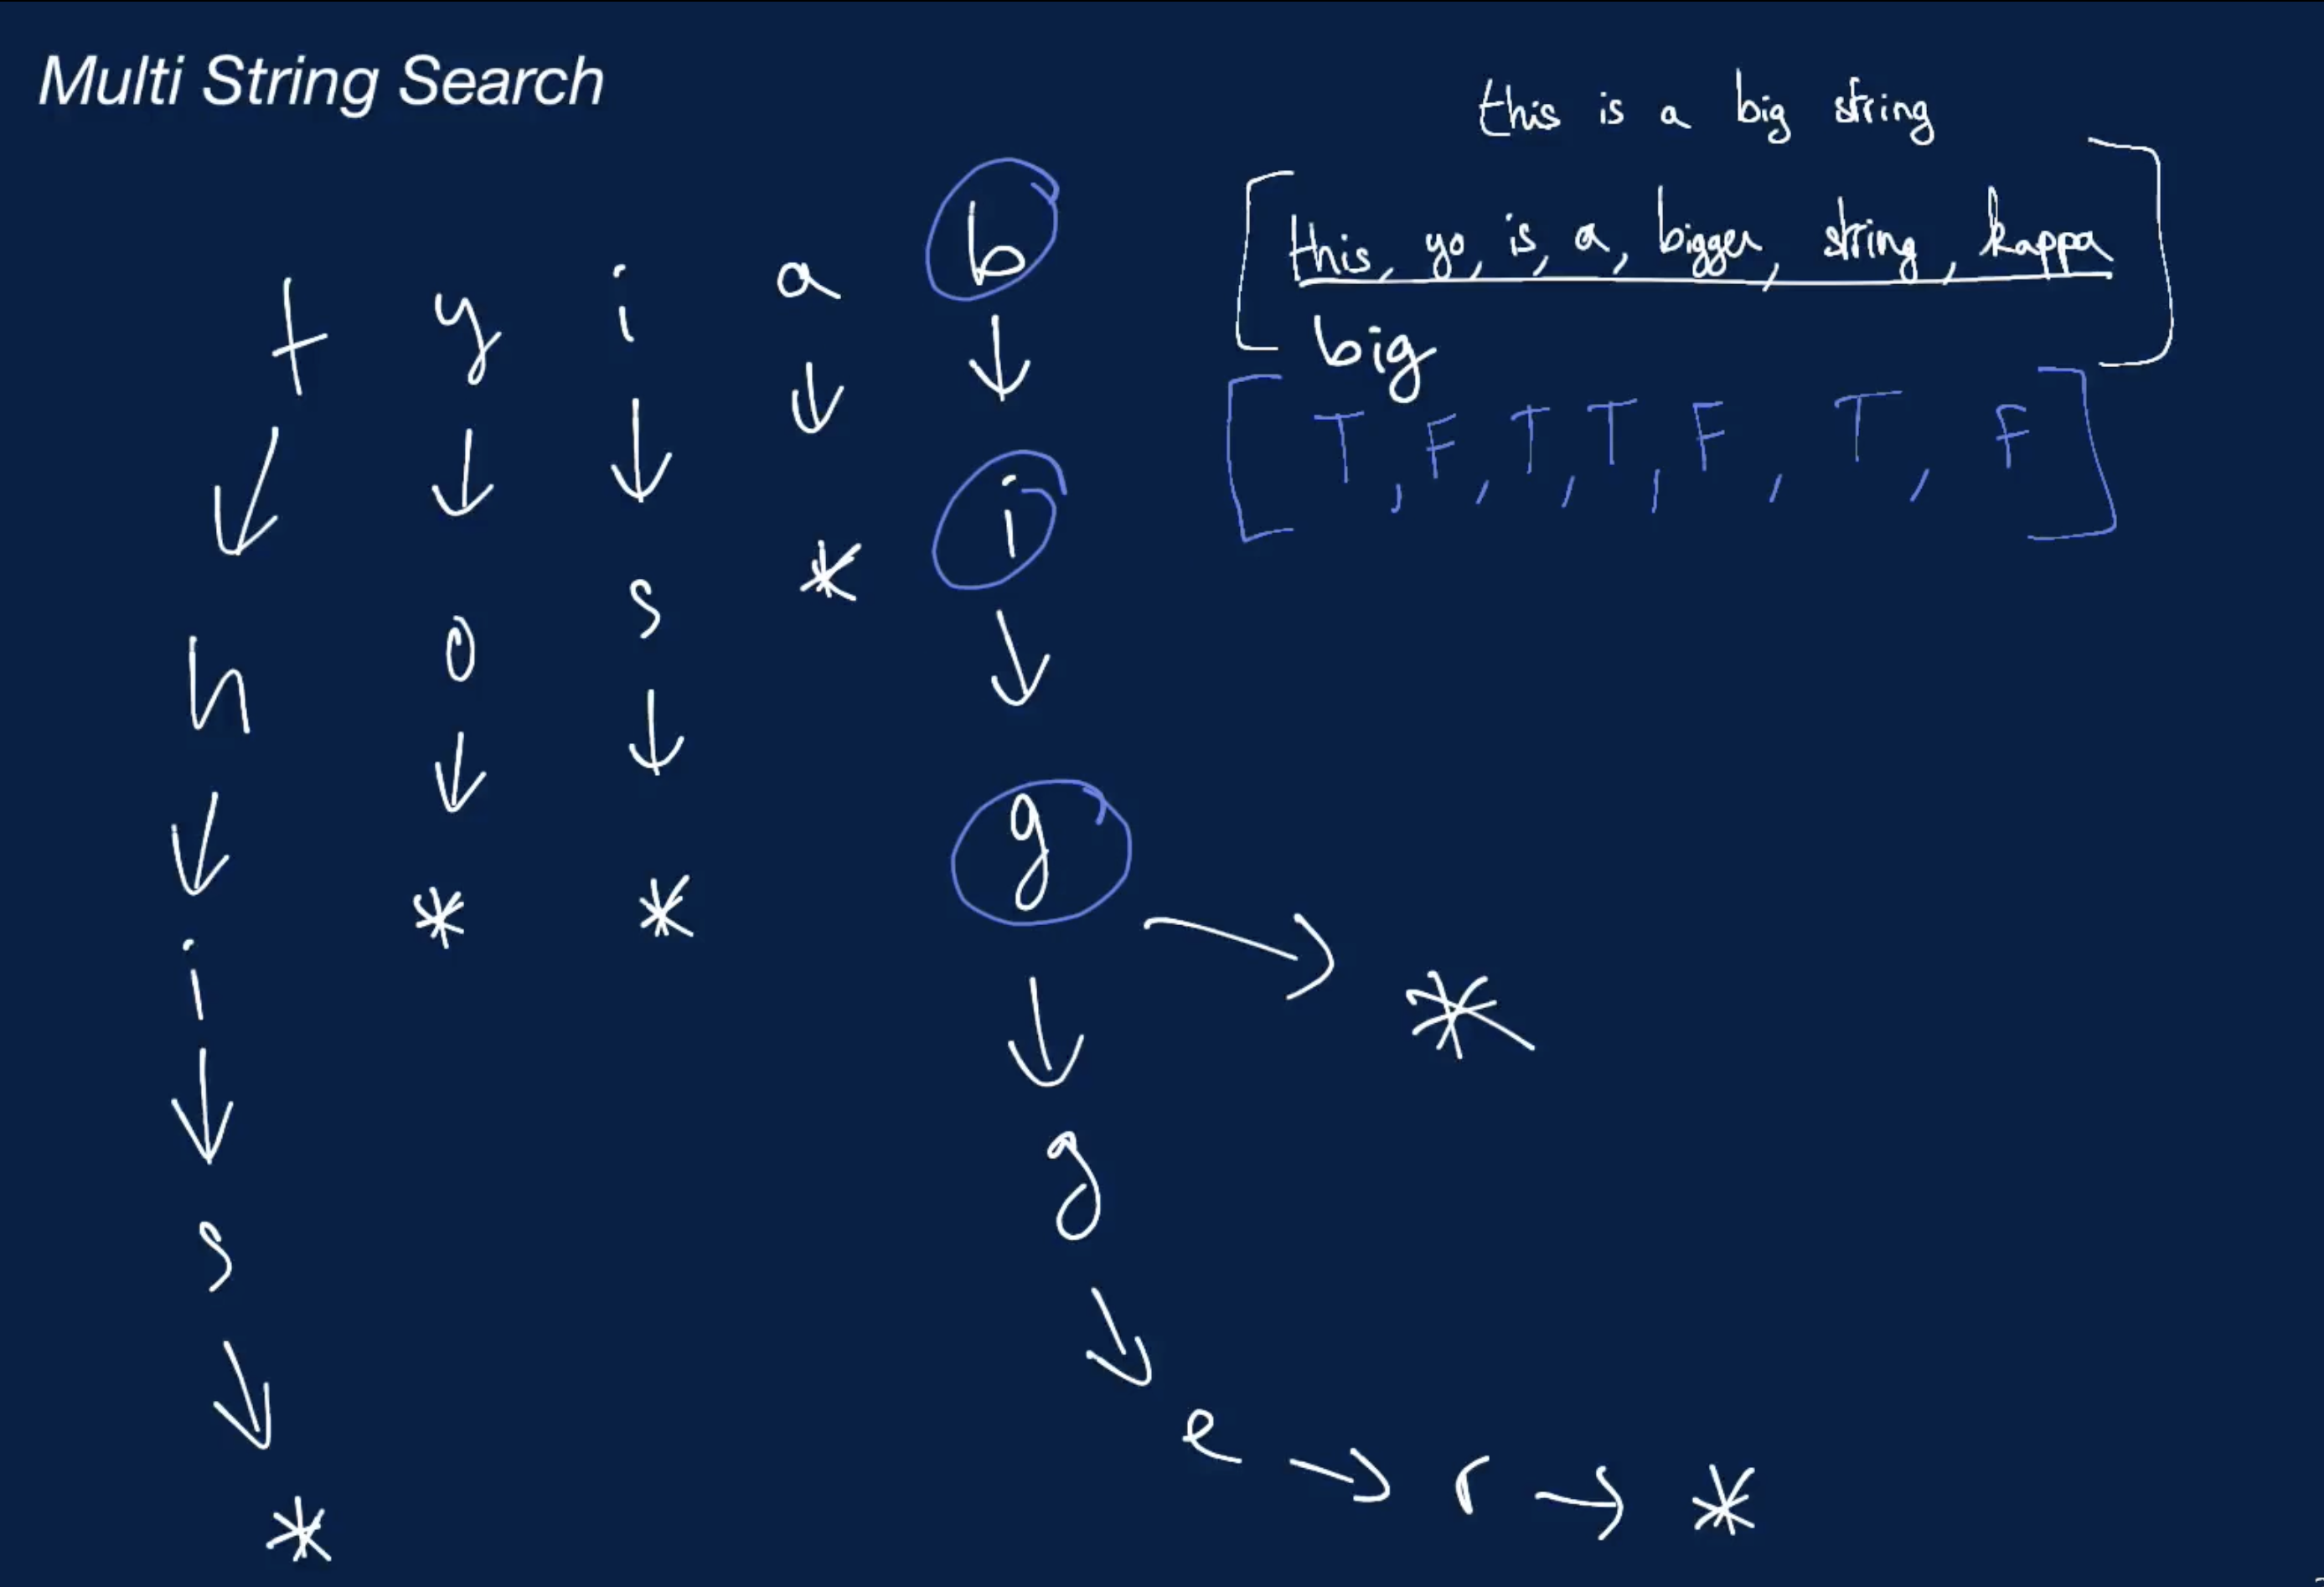 Multi String Search
this is a big string
this, yo, is, a, bigger, string, kappa
big
[ T, F, T, T, F, T, F ]
t y i a b
i
h o s * i
* * g
i *
g
s
e r *
*